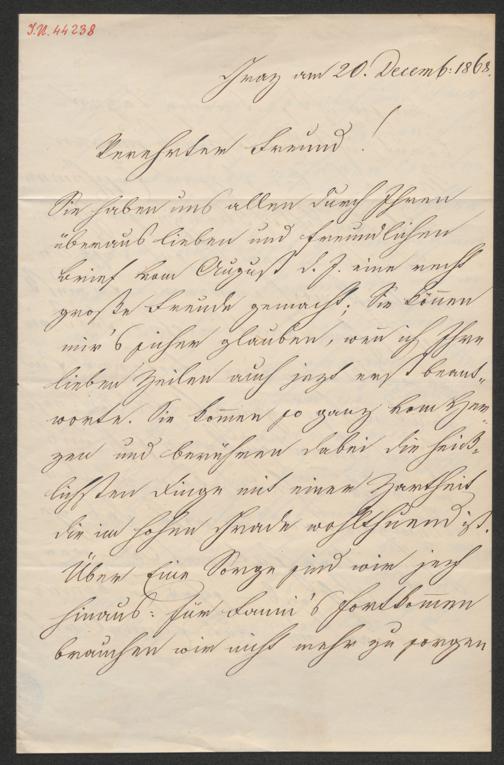 I.N. 44238
Graz am 20. Decemb: 1868.
Verehrter Freund!
Sie haben uns allen durch Ihren
überaus lieben und freundlichen
Brief vom August d. J. eine recht
große Freude gemacht; Sie können
mir's sicher glauben, wenn ich Ihre
lieben Zeilen auch jezt erst beant-
worte. Sie kommen so ganz vom Her-
zen und berühren dabei die heik-
lichsten Dinge mit einer Zartheit
die im hohen Grade wohlthuend ist.
Über Eine Sorge sind wir jezt
hinaus: für Fanni's Fortkommen
brauchen wir nicht mehr zu sorgen